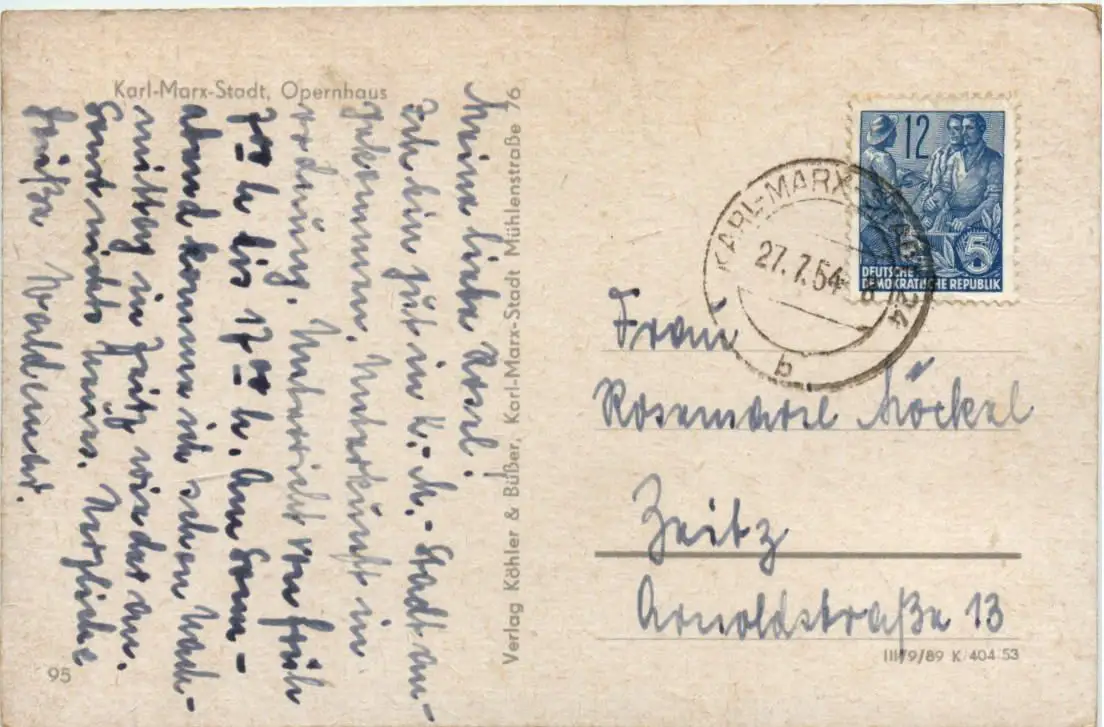 Karl-Marx-Stadt, Opernhaus
Meine liebe Rosel!
Ich bin gut in K.-M.-Stadt an-
gekommen, Unterkunft in
Ordnung. Unterricht von früh
7⁰⁰ h bis 17⁰⁰ h. Am Sonn-
abend komme ich schon Nach-
mittag in Zeitz wieder an.
Sonst nichts neues. Herzliche
Grüße Waldemar.
95
Verlag Köhler & Büßer, Karl-Marx-Stadt Mühlenstraße 76
12
5
DEUTSCHE
DEMOKRATISCHE REPUBLIK
KARL-MARX-STADT
27.7.54
b
Frau
Rosemarie Möckel
Zeitz
Arnoldstraße 13
III/9/89 K 404 53